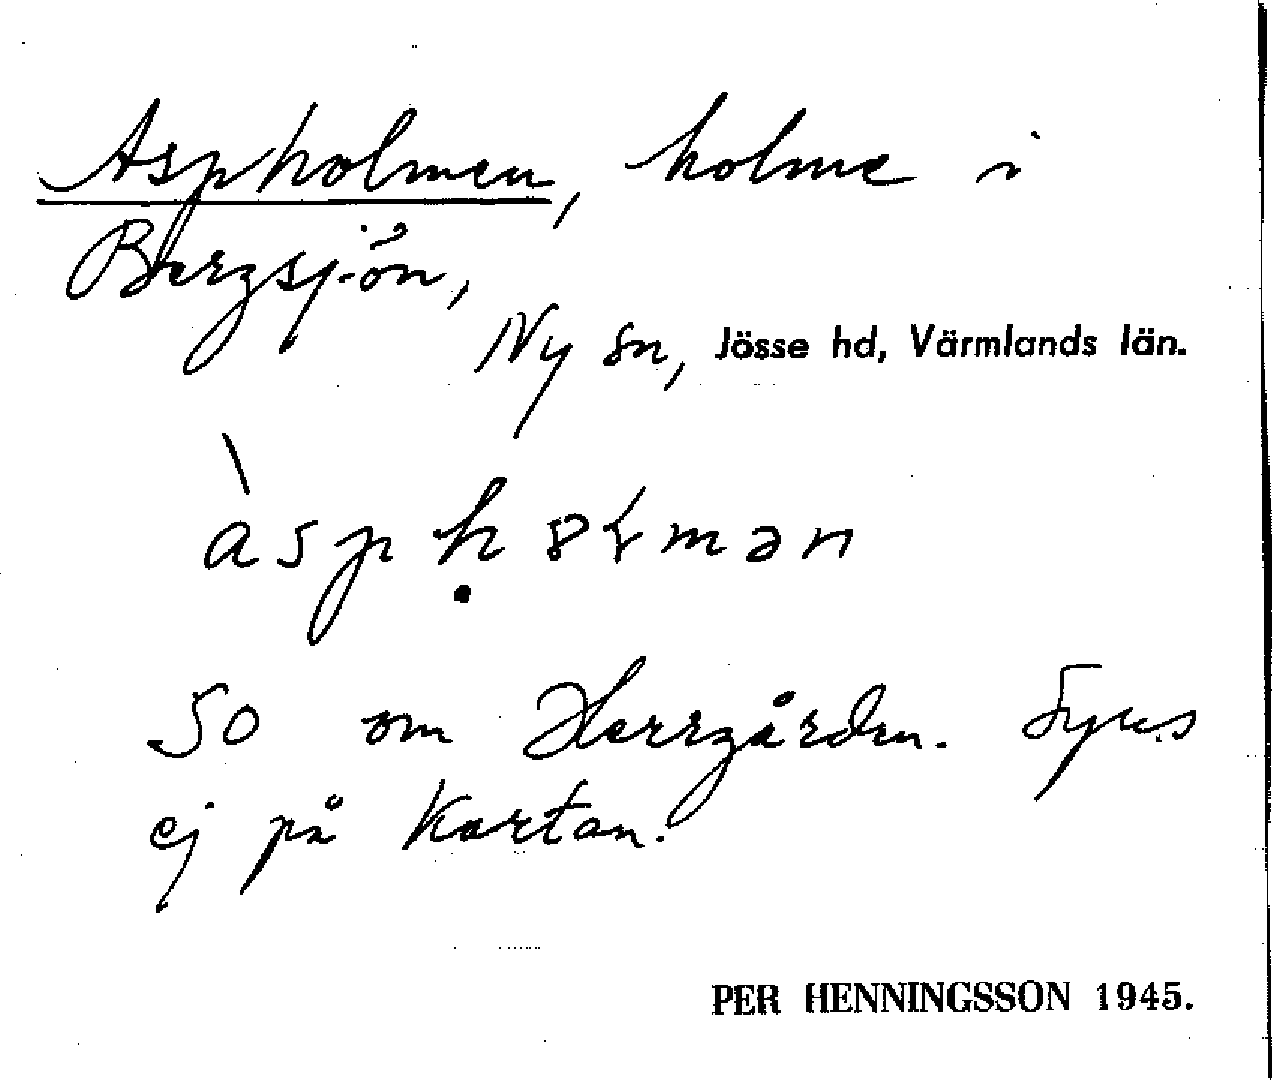 Aspholmen, holme i
Bergsjön,
Ny sn, Jösse hd, Värmlands län.
àspḥ8ɫmən
SO om Herrgården. Syns
ej på Kartan.
PER HENNINGSSON 1945.